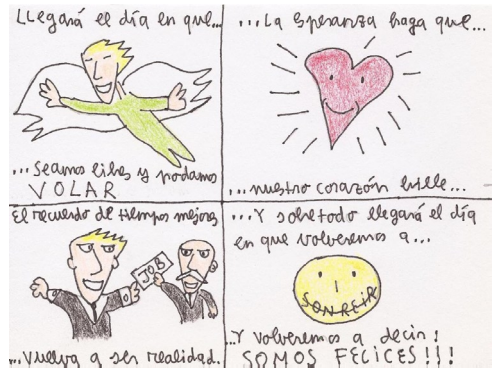 Llegará el día en que...
...Seamos libres y podamos
VOLAR
...La esperanza haga que...
...nuestro corazón brille...
El recuerdo de tiempos mejores
JOB
...vuelva a ser realidad.
...Y sobretodo llegará el día
en que volveremos a...
SONREIR
...Y volveremos a decir:
SOMOS FELICES!!!